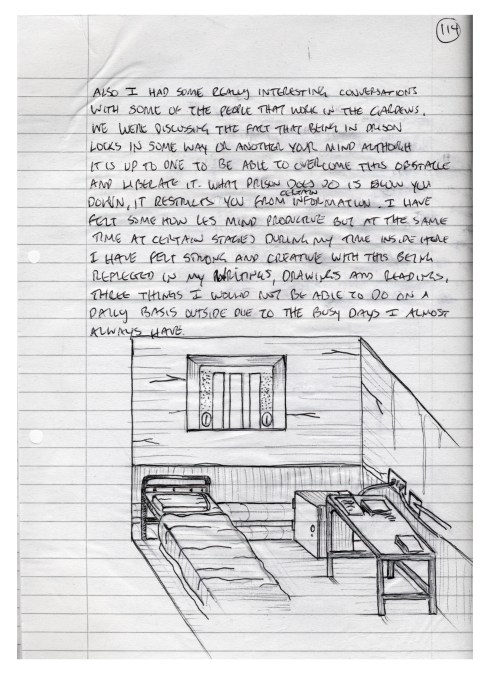 114
ALSO I HAD SOME REALLY INTERESTING CONVERSATIONS
WITH SOME OF THE PEOPLE THAT WORK IN THE GARDENS.
WE WERE DISCUSSING THE FACT THAT BEING IN PRISON
LOCKS IN SOME WAY OR ANOTHER YOUR MIND ALTHOUGH
IT IS UP TO ONE TO BE ABLE TO OVERCOME THIS OBSTACLE
AND LIBERATE IT. WHAT PRISON DOES DO IS SLOW YOU
DOWN, IT RESTRICTS YOU FROM CERTAIN INFORMATION. I HAVE
FELT SOME HOW LES MIND PRODUCTIVE BUT AT THE SAME
TIME AT CERTAIN STAGES DURING MY TIME INSIDE HERE
I HAVE FELT STRONG AND CREATIVE WITH THIS BEING
REFLECTED IN MY WRITINGS, DRAWINGS AND READINGS,
THREE THINGS I WOULD NOT BE ABLE TO DO ON A
DAILY BASIS OUTSIDE DUE TO THE BUSY DAYS I ALMOST
ALWAYS HAVE.